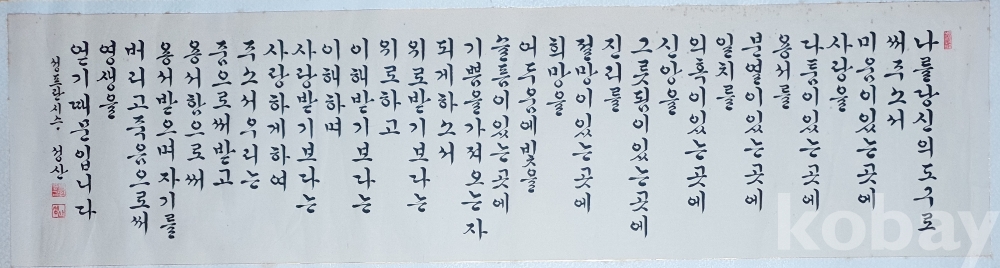 나를당신의도구로
써주소서
미움이있는곳에
사랑을
다툼이있는곳에
용서를
분열이있는곳에
일치를
의혹이있는곳에
신앙을
그릇됨이있는곳에
진리를
절망이있는곳에
희망을
어두움에빛을
슬픔이있는곳에
기쁨을가져오는자
되게하소서
위로받기보다는
위로하고
이해받기보다는
이해하며
사랑받기보다는
사랑하게하여
주소서우리는
줌으로써받고
용서함으로써
용서받으며자기를
버리고죽음으로써
영생을
얻기때문입니다
kobay